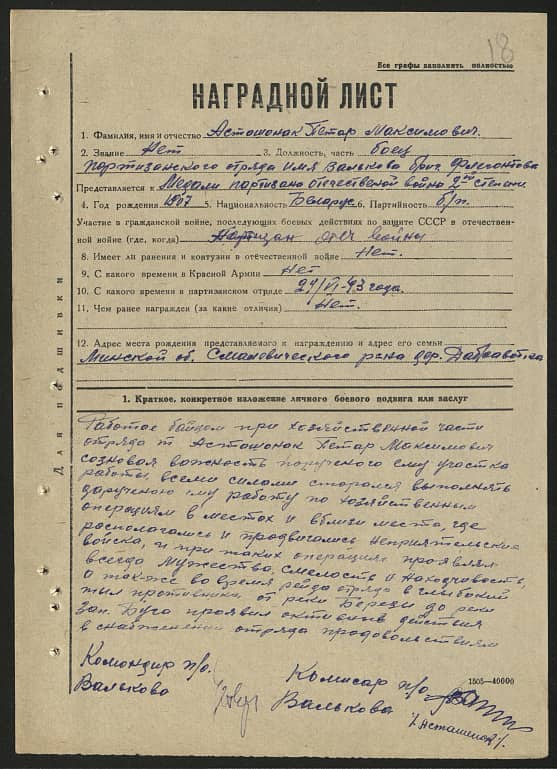 18
Все графы заполнить полностью
НАГРАДНОЙ ЛИСТ
1. Фамилия, имя и отчество Астошонак Петар Максимович.
2. Звание Нет 3. Должность, часть боец
партизанского отряда имя Валькова бриг. Флегонтова
Представляется к Медали партизана отечественой война 2ой степени
4. Год рождения 1907 5. Национальность Беларус 6. Партийность б/п.
Участие в гражданской войне, последующих боевых действиях по защите СССР и отечествен-
ной войне (где, когда) Партизан отеч войны
8. Имеет ли ранения и контузии в отечественной войне Нет.
9. С какого времени в Красной Армии Нет
10. С какого времени в партизанском отряде 29/VI-43 года.
11. Чем ранее награжден (за какие отличия) Нет.
12. Адрес места рождения представляемого к награждению и адрес его семьи
Минской об. Смаловического рена дер.
Для подшивки
1. Краткое, конкретное изложение личного боевого подвига или заслуг
Работое байцом при хозяйственной части
отряда т Астошонак Петар Максимович
созновая важность порученого ему участка
работы, всеми силами старолся выполнять
ему работу по хозяйственным
операциям в местах и вблизи места, где
распологались и продвигались неприятельские
войска, и при таких операциях проявлял
всегда мужество, смелость и находчивость,
а так-же во время рейда отряда в глыбокий
тыл противника от реки Березы до реки
зап. Буга проявил активные действия
в снабжении отряда продовольствием
Командир п/о.
Валькова
Комисар п/о.
Валькова
1505—40000
/Асташенок/.